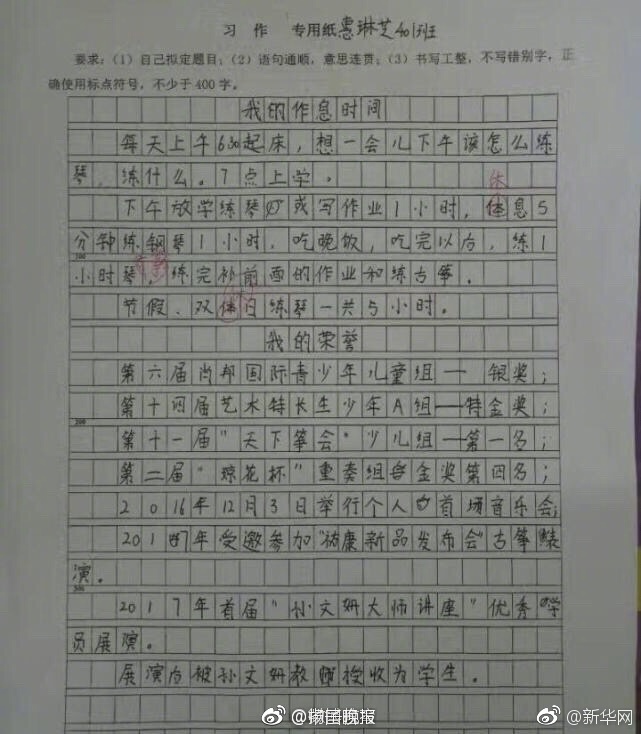 习 作 专用纸 惠琳芝 401班
要求：（1）自己拟定题目；（2）语句通顺，意思连贯；（3）书写工整，不写错别字，正
确使用标点符号，不少于400字。
我的作息时间
每天上午630起床，想一会儿下午该怎么练
琴，练什么。7点上学，
休
下午放学练琴或写作业1小时，体息5
分钟练钢琴1小时，吃晚饭，吃完以后，练1
100
小时琴，练完补前面的作业和练古筝。
节假、双体日练琴一共5小时。
我的荣誉
第六届肖邦国际青少年儿童组——银奖；
第十四届艺术特长生少年A组——特金奖；
200
第十一届"天下筝会"少儿组——第一名；
第二届"琼花杯"重奏组金奖第四名；
2016年12月3日举行个人首场音乐会；
2017年受邀参加"祐康新品发布会"古筝表
演。
300
2017年首届"孙文妍大师讲座"优秀学
员展演。
展演后被孙文妍教师授收为学生。
@新华网